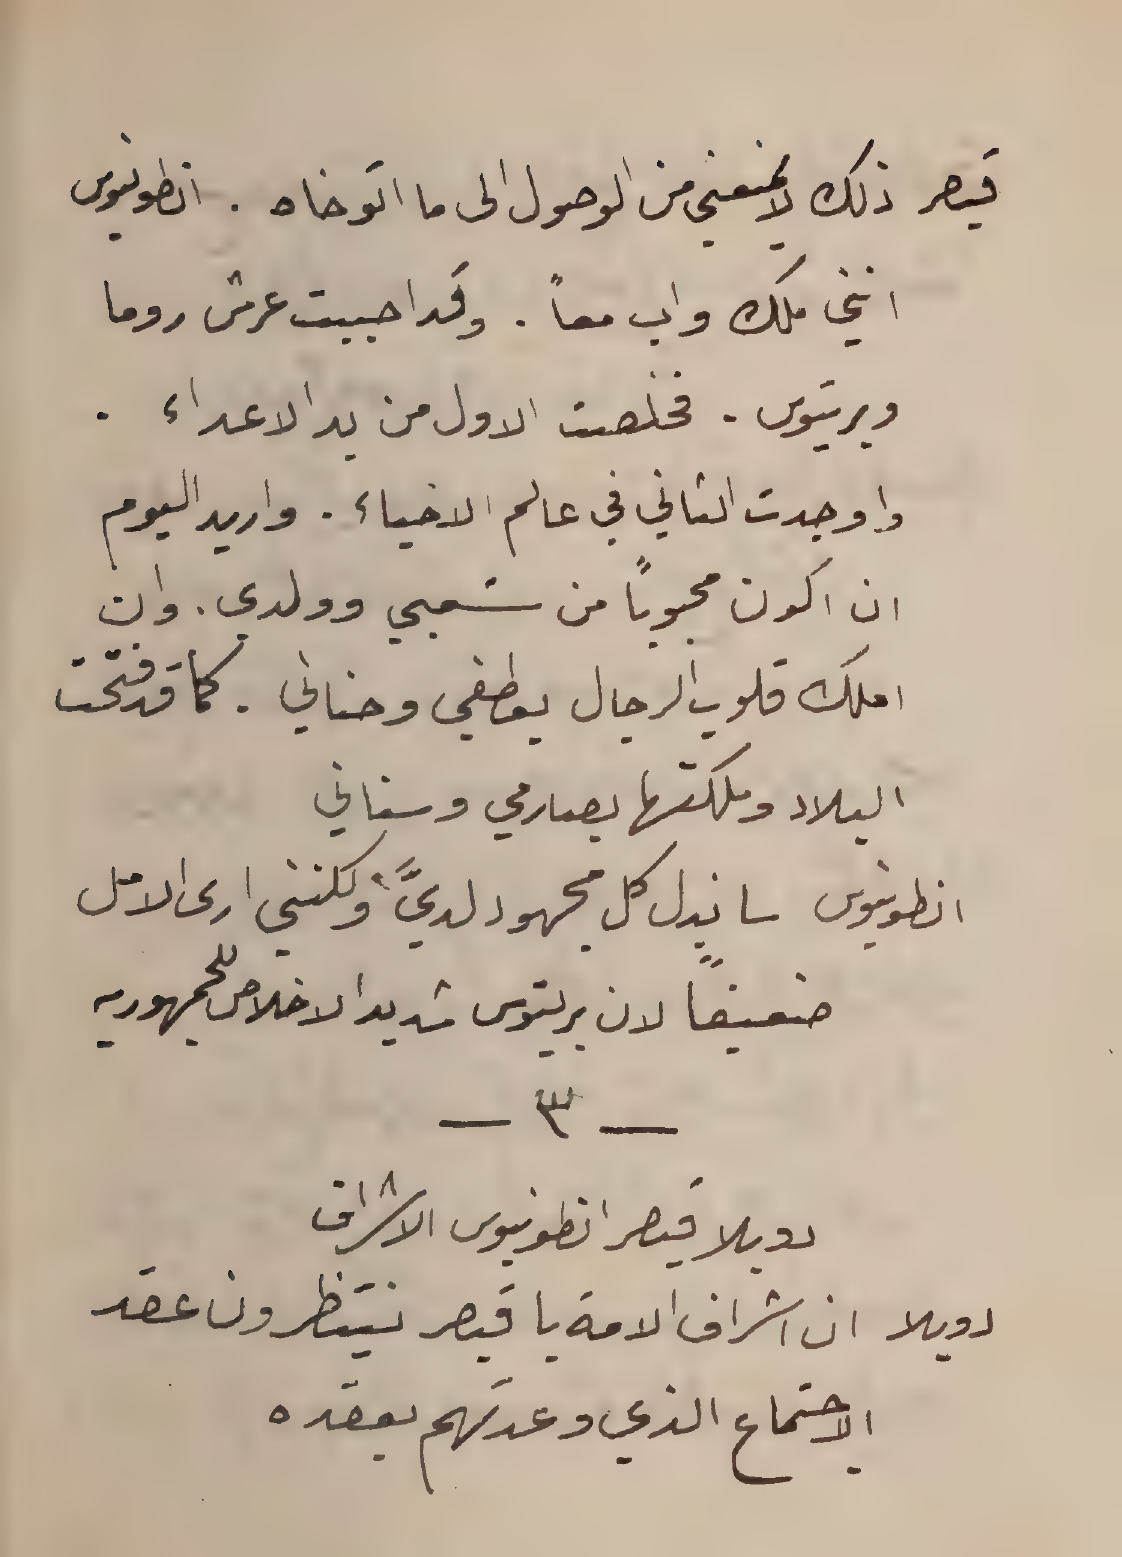 قيصر ذلك لا يمنعني من الوصول الى ما اتوخاه . انطونيوس
انني ملك واب معاً . وقد احببت عرش روما
وبريتوس . فخلصت الاول من يد الاعداء .
واوجدت الثاني في عالم الاحياء . واريد اليوم
ان اكون محبوباً من شعبي وولدي . وان
املك قلوب الرجال بعطفي وحناني . كما قد فتحت
البلاد وملكتها بصارمي وسناني
انطونيوس سابذل كل مجهود لديَّ ولكنني ارى الامل
ضعيفاً لان بريتوس شديد الاخلاص للجمهوريه
— ٣ —
دويلا قيصر انطونيوس الاشراف
دويلا ان اشراف الامة يا قيصر ينتظرون عقد
الاجتماع الذي وعدتهم بعقده